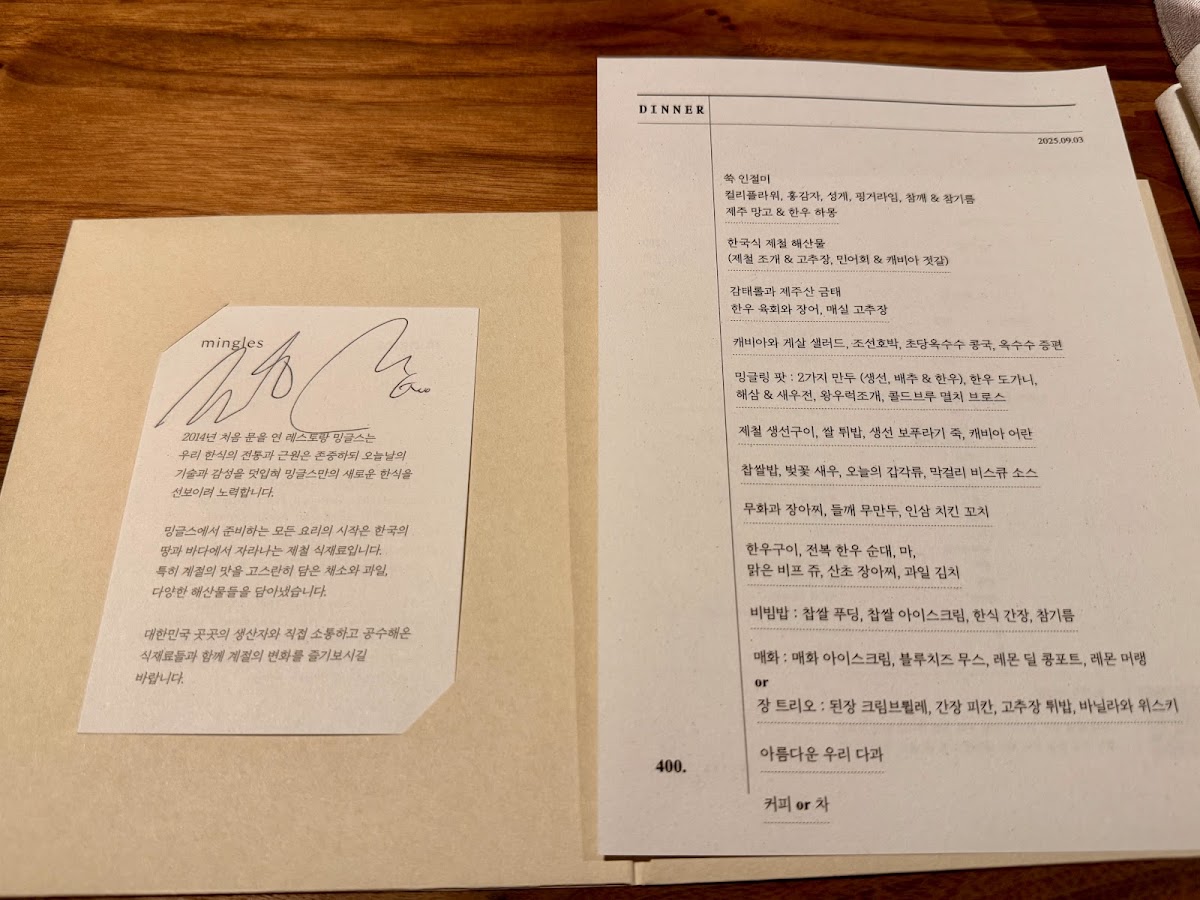 mingles
2014년 처음 문을 연 레스토랑 밍글스는
우리 한식의 전통과 근원은 존중하되 오늘날의
기술과 감성을 덧입혀 밍글스만의 새로운 한식을
선보이려 노력합니다.
밍글스에서 준비하는 모든 요리의 시작은 한국의
땅과 바다에서 자라나는 제철 식재료입니다.
특히 계절의 맛을 고스란히 담은 채소와 과일,
다양한 해산물들을 담아냈습니다.
대한민국 곳곳의 생산자와 직접 소통하고 공수해온
식재료들과 함께 계절의 변화를 즐기보시길
바랍니다.
DINNER
2025.09.03
쑥 인절미
컬리플라워, 홍감자, 성게, 핑거라임, 참깨 & 참기름
제주 망고 & 한우 하몽
한국식 제철 해산물
(제철 조개 & 고추장, 민어회 & 캐비아 젓갈)
감태롤과 제주산 금태
한우 육회와 장어, 매실 고추장
캐비아와 게살 샐러드, 조선호박, 초당옥수수 콩국, 옥수수 증편
밍글링 팟 : 2가지 만두 (생선, 배추 & 한우), 한우 도가니,
해삼 & 새우전, 왕우럭조개, 콜드브루 멸치 브로스
제철 생선구이, 쌀 튀밥, 생선 보푸라기 죽, 캐비아 어란
찹쌀밥, 벚꽃 새우, 오늘의 갑각류, 막걸리 비스큐 소스
무화과 장아찌, 들깨 무만두, 인삼 치킨 꼬치
한우구이, 전복 한우 순대, 마,
맑은 비프 쥬, 산초 장아찌, 과일 김치
비빔밥 : 찹쌀 푸딩, 찹쌀 아이스크림, 한식 간장, 참기름
매화 : 매화 아이스크림, 블루치즈 무스, 레몬 딜 콩포트, 레몬 머랭
or
장 트리오 : 된장 크림브륄레, 간장 피칸, 고추장 튀밥, 바닐라와 위스키
아름다운 우리 다과
400.
커피 or 차